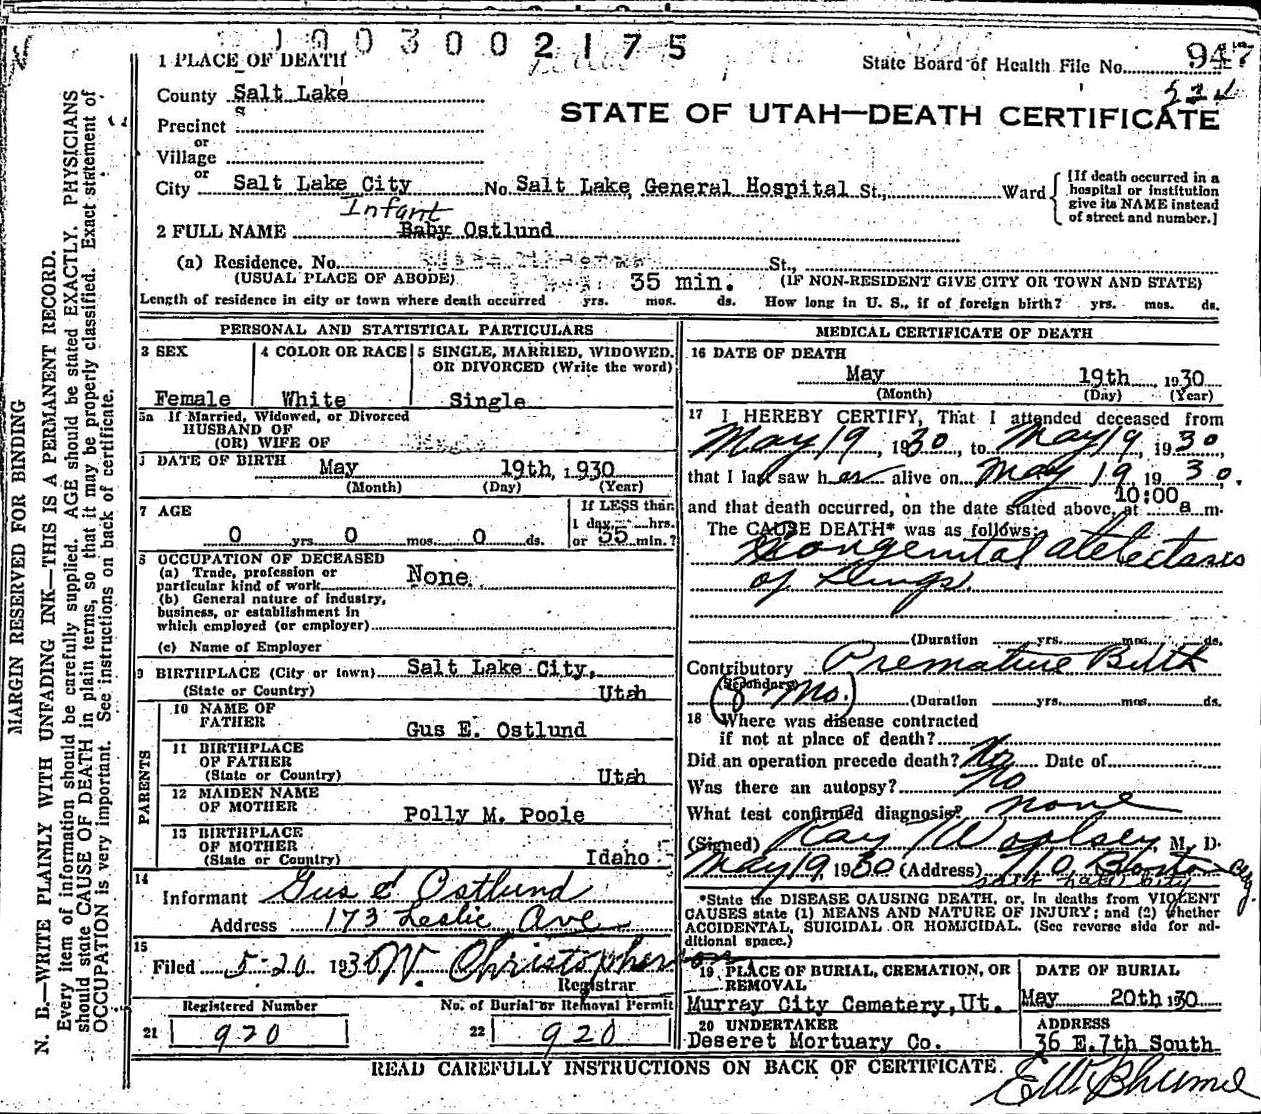 1003002175
1 PLACE OF DEATH
State Board of Health File No. 947
County Salt Lake
STATE OF UTAH—DEATH CERTIFICATE
Precinct
or
Village
or
City Salt Lake City No. Salt Lake General Hospital St., Ward
[If death occurred in a
hospital or institution
give its NAME instead
of street and number.]
Infant
2 FULL NAME Baby Ostlund
(a) Residence. No. St.,
(USUAL PLACE OF ABODE) 35 min. (IF NON-RESIDENT GIVE CITY OR TOWN AND STATE)
Length of residence in city or town where death occurred yrs. mos. ds. How long in U. S., if of foreign birth? yrs. mos. ds.
PERSONAL AND STATISTICAL PARTICULARS
3 SEX
Female
4 COLOR OR RACE
White
5 SINGLE, MARRIED, WIDOWED,
OR DIVORCED (Write the word)
Single
5a If Married, Widowed, or Divorced
HUSBAND OF
(OR) WIFE OF
DATE OF BIRTH May 19th, 1930
(Month) (Day) (Year)
7 AGE
0 yrs. 0 mos. 0 ds.
If LESS than
1 day, hrs.
or 35 min.?
8 OCCUPATION OF DECEASED
(a) Trade, profession or
particular kind of work None
(b) General nature of industry,
business, or establishment in
which employed (or employer)
(c) Name of Employer
9 BIRTHPLACE (City or town) Salt Lake City,
(State or Country) Utah
PARENTS
10 NAME OF
FATHER Gus E. Ostlund
11 BIRTHPLACE
OF FATHER
(State or Country) Utah
12 MAIDEN NAME
OF MOTHER Polly M. Poole
13 BIRTHPLACE
OF MOTHER
(State or Country) Idaho
14
Informant Gus E Ostlund
Address 173 Leslie Ave
15
Filed 5-20 1930 W. Christopherson
Registrar
Registered Number
21 920
No. of Burial or Removal Permit
22 920
MEDICAL CERTIFICATE OF DEATH
16 DATE OF DEATH
May 19th, 1930
(Month) (Day) (Year)
17 I HEREBY CERTIFY, That I attended deceased from
May 19, 1930, to May 19, 1930,
that I last saw her alive on May 19, 1930.
10:00
and that death occurred, on the date stated above, at a m.
The CAUSE DEATH* was as follows:
Congenital Atelectases
of Lungs.
(Duration yrs. mos. ds.
Contributory Premature Birth
(Secondary)
(8 Mo.) (Duration yrs. mos. ds.
18 Where was disease contracted
if not at place of death?
Did an operation precede death? No Date of
Was there an autopsy? No
What test confirmed diagnosis? none
(Signed) Ray Woolsey, M. D.
May 19 1930 (Address) 710 Boston Bldg.
Salt Lake City
*State the DISEASE CAUSING DEATH, or, in deaths from VIOLENT
CAUSES state (1) MEANS AND NATURE OF INJURY; and (2) whether
ACCIDENTAL, SUICIDAL OR HOMICIDAL. (See reverse side for ad-
ditional space.)
19 PLACE OF BURIAL, CREMATION, OR
REMOVAL
Murray City Cemetery, Ut.
DATE OF BURIAL
May 20th 1930
20 UNDERTAKER
Deseret Mortuary Co.
ADDRESS
36 E. 7th South
READ CAREFULLY INSTRUCTIONS ON BACK OF CERTIFICATE.
MARGIN RESERVED FOR BINDING
N. B.—WRITE PLAINLY WITH UNFADING INK—THIS IS A PERMANENT RECORD.
Every item of information should be carefully supplied. AGE should be stated EXACTLY. PHYSICIANS
should state CAUSE OF DEATH in plain terms, so that it may be properly classified. Exact statement of
OCCUPATION is very important. See instructions on back of certificate.